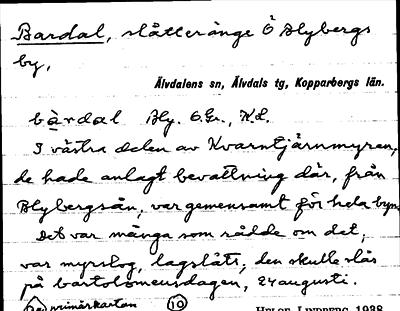 Bardal, slåtteränge Ö Blybergs
by.
Älvdalens sn, Älvdals tg, Kopparbergs län.
bàrdal Bly. G.Er., K.L.
I västra delen av Kvarntjärnmyren,
de hade anlagt bevattning där, från
Blybergsån, var gemensamt för hela byn.
Det var många som rådde om det,
var myrslog, lagslått, den skulle slås
på bartolomeusdagen, 24 augusti.
primärkartan (10) HELGE LINDBERG 1938